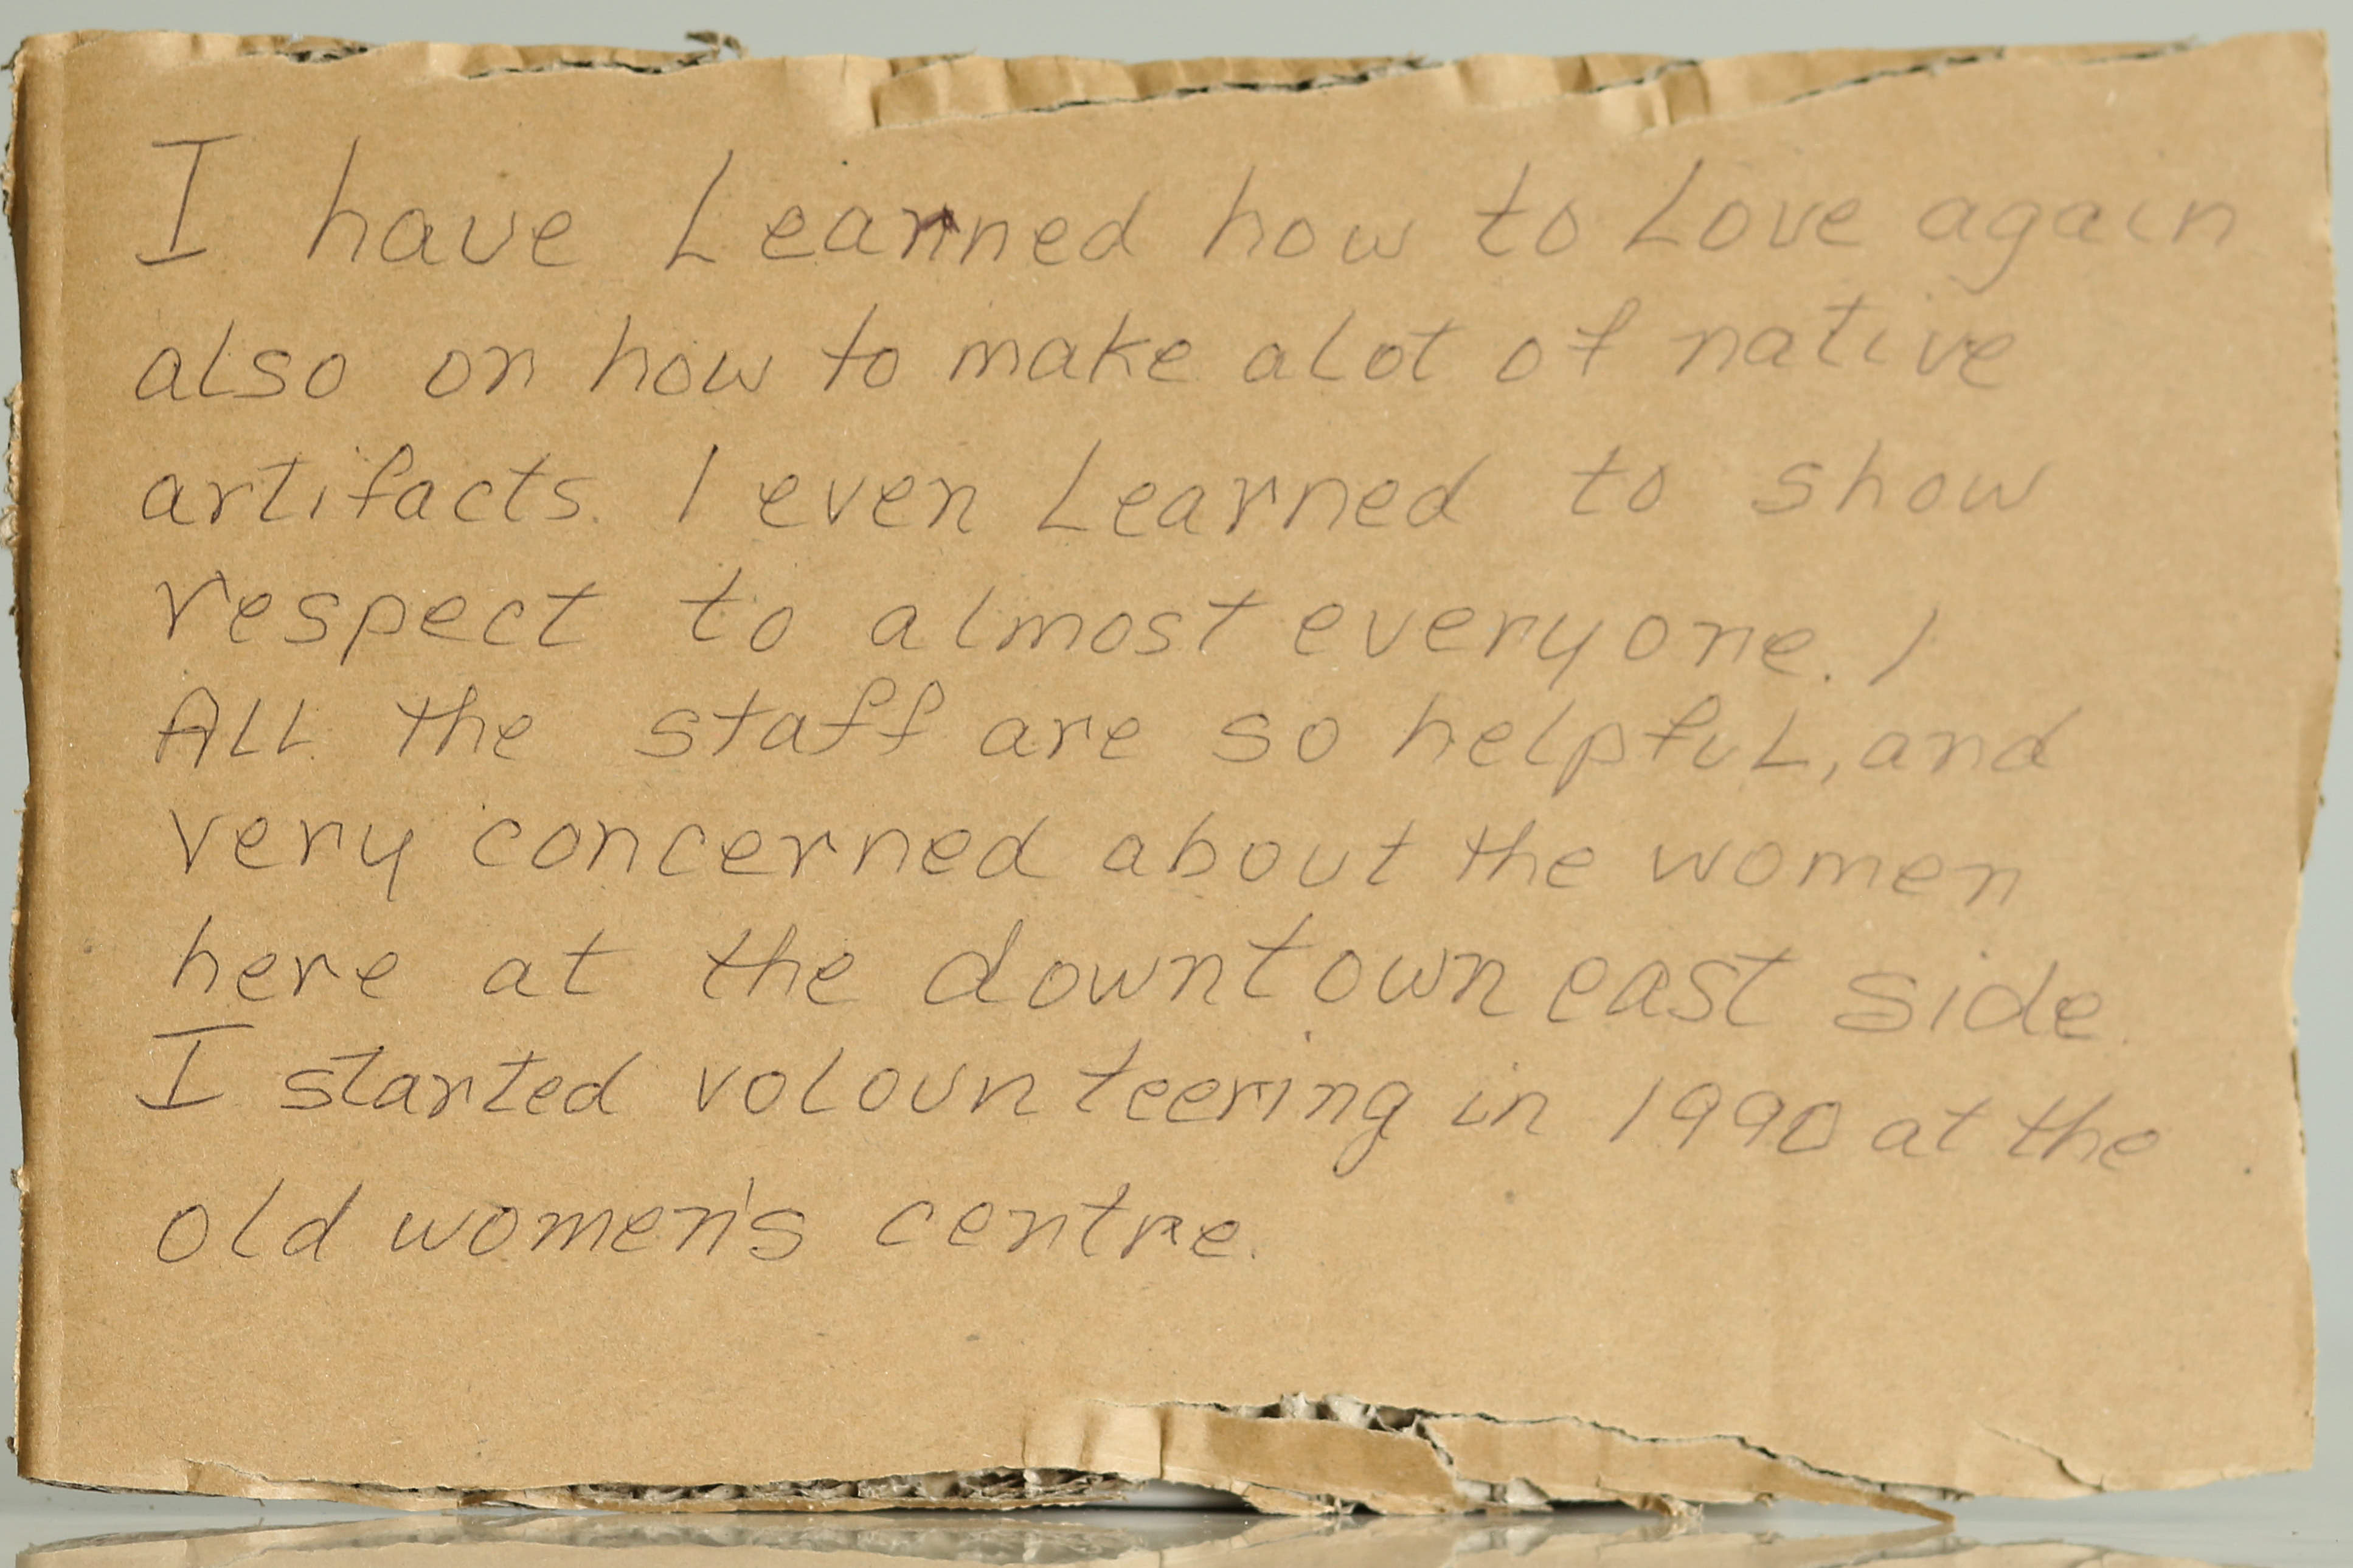 I have Learned how to Love again
also on how to make alot of native
artifacts. I even Learned to show
respect to almost everyone. I
ALL the staff are so helpfuL, and
very concerned about the women
here at the downtown east side.
I started volounteering in 1990 at the
old women's centre.